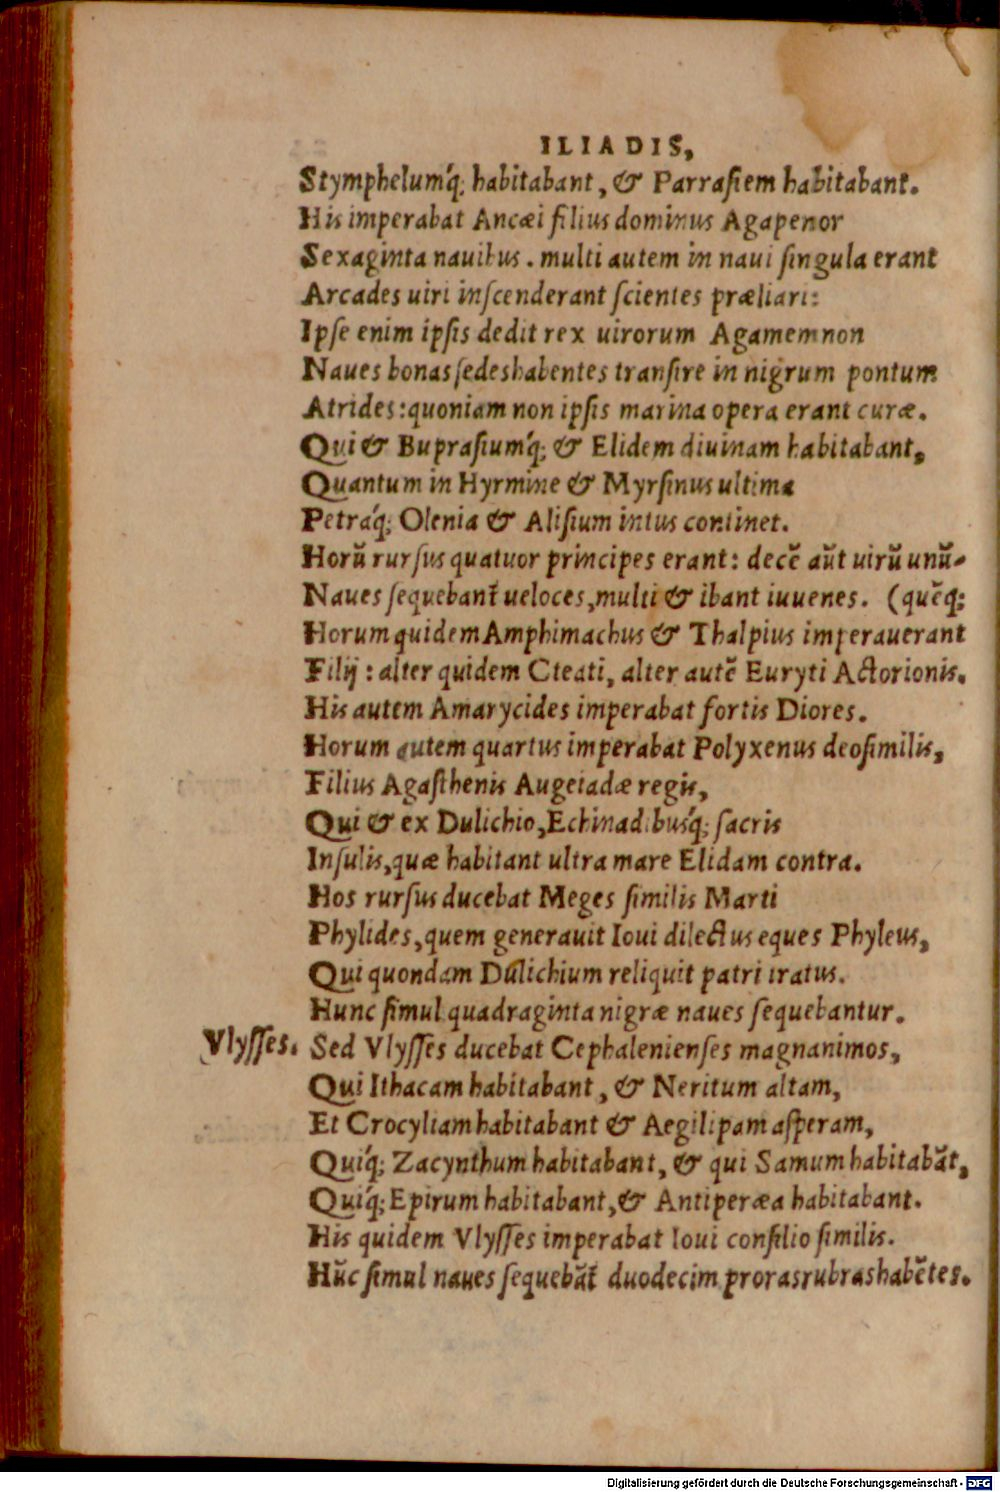 ILIADIS,
Stymphelumq́; habitabant, & Parrasiem habitabant.
His imperabat Ancæi filius dominus Agapenor
Sexaginta nauibus. multi autem in naui singula erant
Arcades uiri inscenderant scientes præliari:
Ipse enim ipsis dedit rex uirorum Agamemnon
Naues bonas sedes habentes transire in nigrum pontum
Atrides: quoniam non ipsis marina opera erant curæ.
Qui & Buprasiumq́; & Elidem diuinam habitabant,
Quantum in Hyrmine & Myrsinus ultima
Petraq́; Olenia & Alisium intus continet.
Horũ rursus quatuor principes erant: decẽ aũt uirũ unũ-
Naues sequebant̃ ueloces, multi & ibant iuuenes. (quẽq;
Horum quidem Amphimachus & Thalpius imperauerant
Filij: alter quidem Cteati, alter autẽ Euryti Actorionis.
His autem Amarycides imperabat fortis Diores.
Horum autem quartus imperabat Polyxenus deosimilis,
Filius Agasthenis Augeiadæ regis,
Qui & ex Dulichio, Echinadibusq́; sacris
Insulis, quæ habitant ultra mare Elidam contra.
Hos rursus ducebat Meges similis Marti
Phylides, quem generauit Ioui dilectus eques Phyleus,
Qui quondam Dulichium reliquit patri iratus.
Hunc simul quadraginta nigræ naues sequebantur.
Vlysses. Sed Vlysses ducebat Cephalenienses magnanimos,
Qui Ithacam habitabant, & Neritum altam,
Et Crocyliam habitabant & Aegilipam asperam,
Quiq́; Zacynthum habitabant, & qui Samum habitabãt,
Quiq́; Epirum habitabant, & Antiperæa habitabant.
His quidem Vlysses imperabat Ioui consilio similis.
Hũc simul naues sequebãt̃ duodecim proras rubras habẽtes.
Digitalisierung gefördert durch die Deutsche Forschungsgemeinschaft - DFG